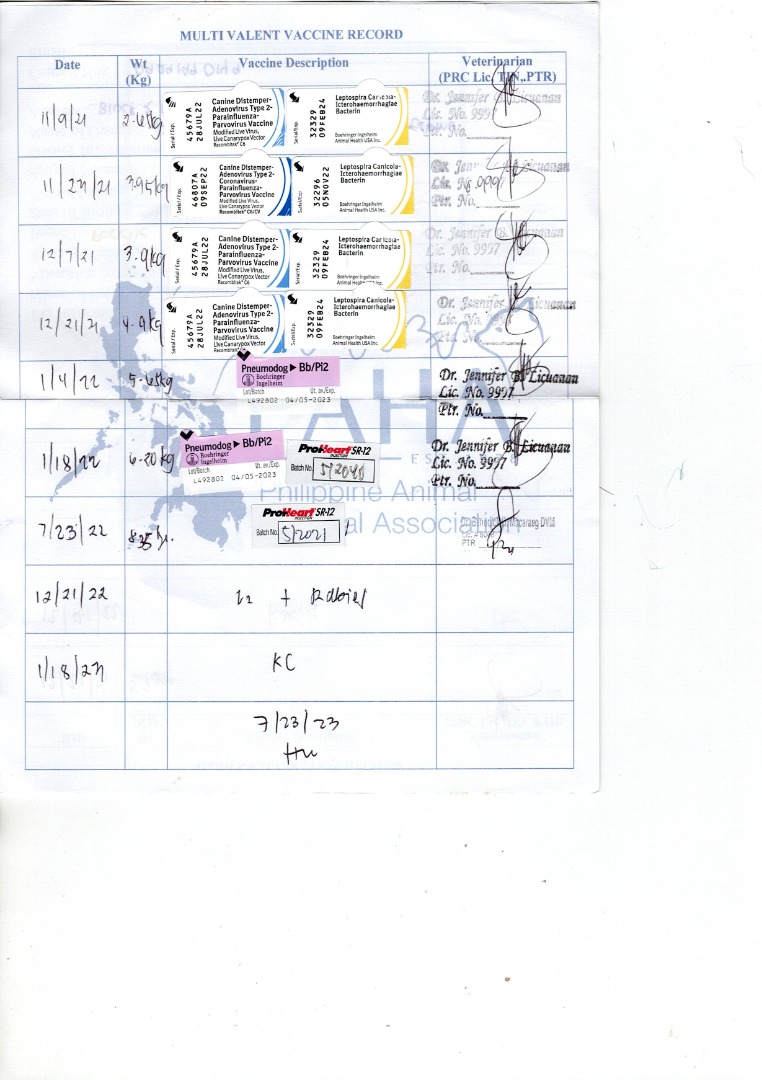 MULTI VALENT VACCINE RECORD
Date
Wt
(Kg)
Vaccine Description
Veterinarian
(PRC Lic, TIN,.PTR)
11/9/21
Serial/Exp.
45679A
28JUL22
Canine Distemper-
Adenovirus Type 2-
Parainfluenza-
Parvovirus Vaccine
Modified Live Virus,
Live Canarypox Vector
Recombitek® C6
Serial/Exp.
32329
09FEB24
Leptospira Canicola-
Icterohaemorrhagiae
Bacterin
Boehringer Ingelheim
Animal Health USA Inc.
Dr. Jennifer B. Licuanan
Lic. No. 9997
Ptr. No.
11/23/21
3.95kg
Serial/Exp.
46807A
09SEP22
Canine Distemper-
Adenovirus Type 2-
Coronavirus-
Parainfluenza-
Parvovirus Vaccine
Modified Live Virus,
Live Canarypox Vector
Recombitek® C6/CV
Serial/Exp.
32296
05NOV22
Leptospira Canicola-
Icterohaemorrhagiae
Bacterin
Boehringer Ingelheim
Animal Health USA Inc.
Dr. Jennifer B. Licuanan
Lic. No. 9997
Ptr. No.
12/7/21
3.9kg
Serial/Exp.
45679A
28JUL22
Canine Distemper-
Adenovirus Type 2-
Parainfluenza-
Parvovirus Vaccine
Modified Live Virus,
Live Canarypox Vector
Recombitek® C6
Serial/Exp.
32329
09FEB24
Leptospira Canicola-
Icterohaemorrhagiae
Bacterin
Boehringer Ingelheim
Animal Health USA Inc.
Dr. Jennifer B. Licuanan
Lic. No. 9997
Ptr. No.
12/21/21
4.9kg
Serial/Exp.
45679A
28JUL22
Canine Distemper-
Adenovirus Type 2-
Parainfluenza-
Parvovirus Vaccine
Modified Live Virus,
Live Canarypox Vector
Recombitek® C6
Serial/Exp.
32329
09FEB24
Leptospira Canicola-
Icterohaemorrhagiae
Bacterin
Boehringer Ingelheim
Animal Health USA Inc.
Dr. Jennifer B. Licuanan
Lic. No.
Ptr. No.
1/4/22
5.65kg
Pneumodog ▶ Bb/Pi2
Boehringer
Ingelheim
Lot/Batch
Ut. av/Exp.
L492802 04/05-2023
Dr. Jennifer B. Licuanan
Lic. No. 9997
Ptr. No.
PAHA
1/18/22
6.20kg
Pneumodog ▶ Bb/Pi2
Boehringer
Ingelheim
Lot/Batch
Ut. av/Exp.
L492802 04/05-2023
ProHeart SR-12
INJECTION
Batch No.
Dr. Jennifer B. Licuanan
Lic. No. 9997
Ptr. No.
Philippine Animal
Hospital Association
7/23/22
ProHeart SR-12
INJECTION
Batch No. 512021
Macaraeg DVM
PTR
12/21/22
+ Rabies
1/18/23
KC
7/23/23